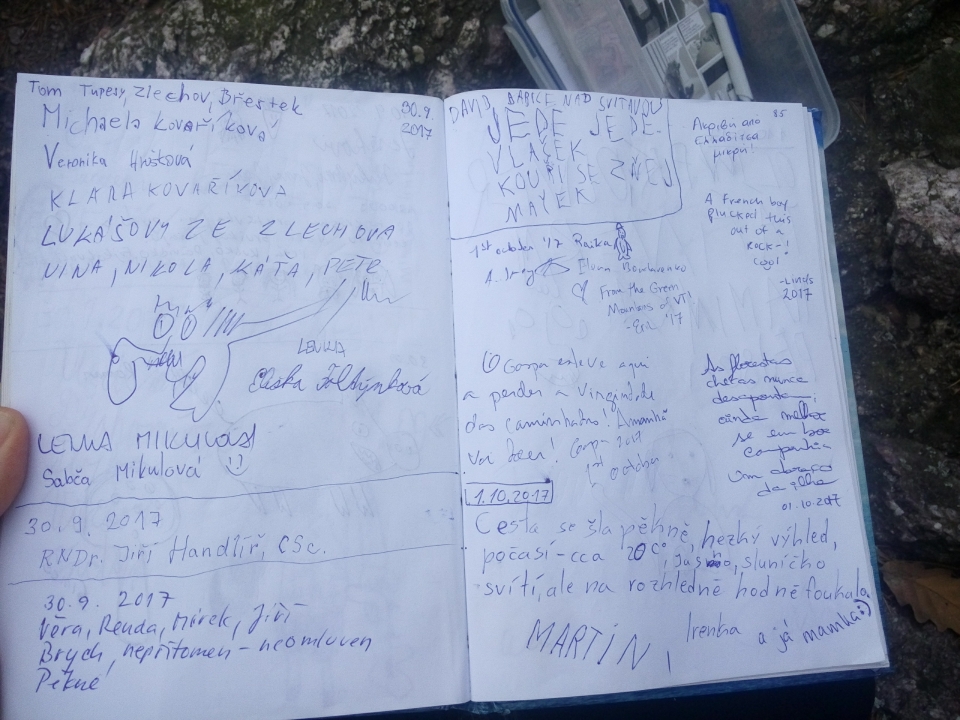 Tom Tupesy, Zlechov, Břestek
30.9.
2017
Michaela Kovaříková
Veronika
KLARA KOVAŘÍKOVA
LUKÁŠOVY ZE ZLECHOVA
NINA, NIKOLA, KÁŤA, PETR
LENKA
Eliška Foltýnková
LENKA
Sabča Mikulová
30.9. 2017
RNDr. Jiří Handlíř, CSc.
30.9. 2017
Věra, Renda, Mirek, Jiří
Brych, nepřítomen - neomluven
Pěkné
DAVID, BABICE NAD SVITAVOU
JEDE JEDE
VLAŠEK
KOUŘI SE ZNEJ
MAYEK
1st october '17
From the Green
Mountains of VT!
'17
Gorpa esteve aqui
a perder a Virgindade
das caminhadas! Amanhã
vai doer! 2017
1st october
85
A French boy
plucked this
out of a
rock-!
cool!
-Linds
2017
As florestas
cheias nunca
desaponta
ainda melhor
se em boa
companhia
Um abraço
da ilha
01.10.2017
1.10.2017
Cesta se šla pěkně, hezký výhled,
počasí-cca 20C°, sluníčko
svítí, ale na rozhledně hodně foukalo.
MARTIN, Irenka a já mamka :)